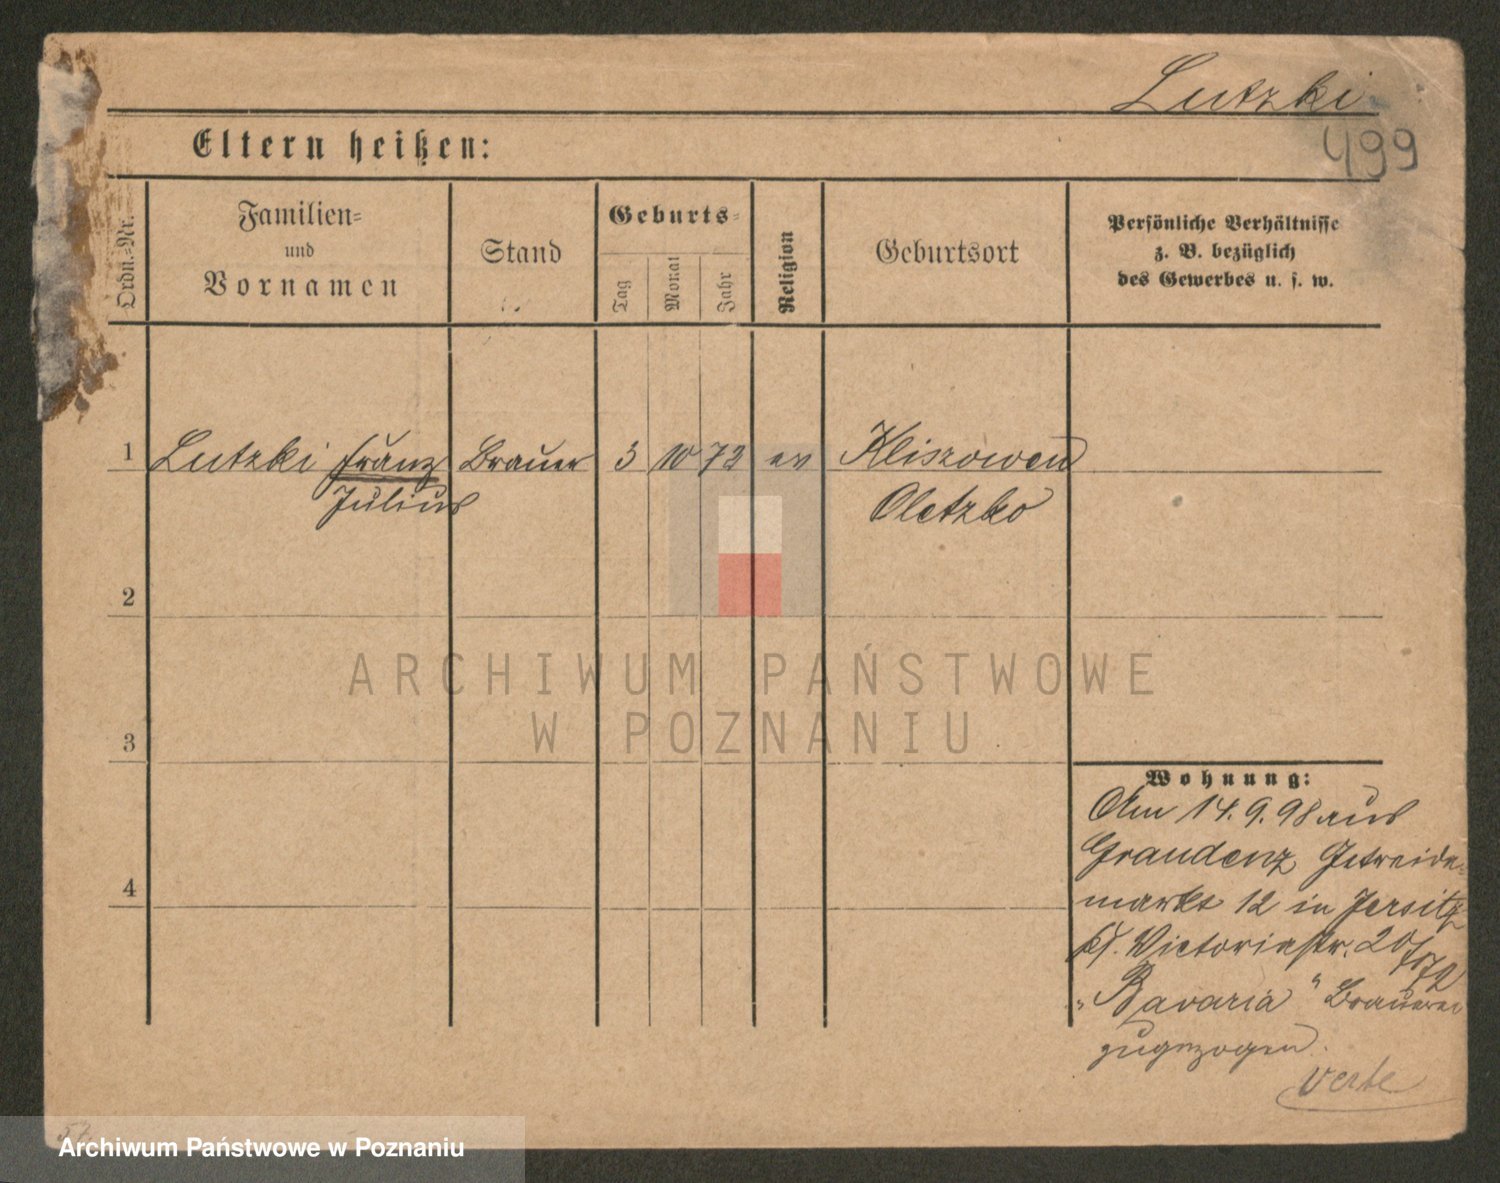 Lutzki
499
Eltern heißen:
Ordn.-Nr.
Familien-
und
Vornamen
Stand
Geburts-
Tag
Monat
Jahr
Religion
Geburtsort
Persönliche Verhältnisse
z. B. bezüglich
des Gewerbes u. s. w.
1 Lutzki Franz Brauer 3 10 72 ev Kliszowen
Julius Oletzko
2
3
4
Wohnung:
Am 14.9.98 aus
Graudenz Getreide-
markt 12 in Jersitz
Victoriastr. 20/
"Bavaria" Brauerei
zugezogen.
verte
ARCHIWUM PAŃSTWOWE
W POZNANIU
Archiwum Państwowe w Poznaniu